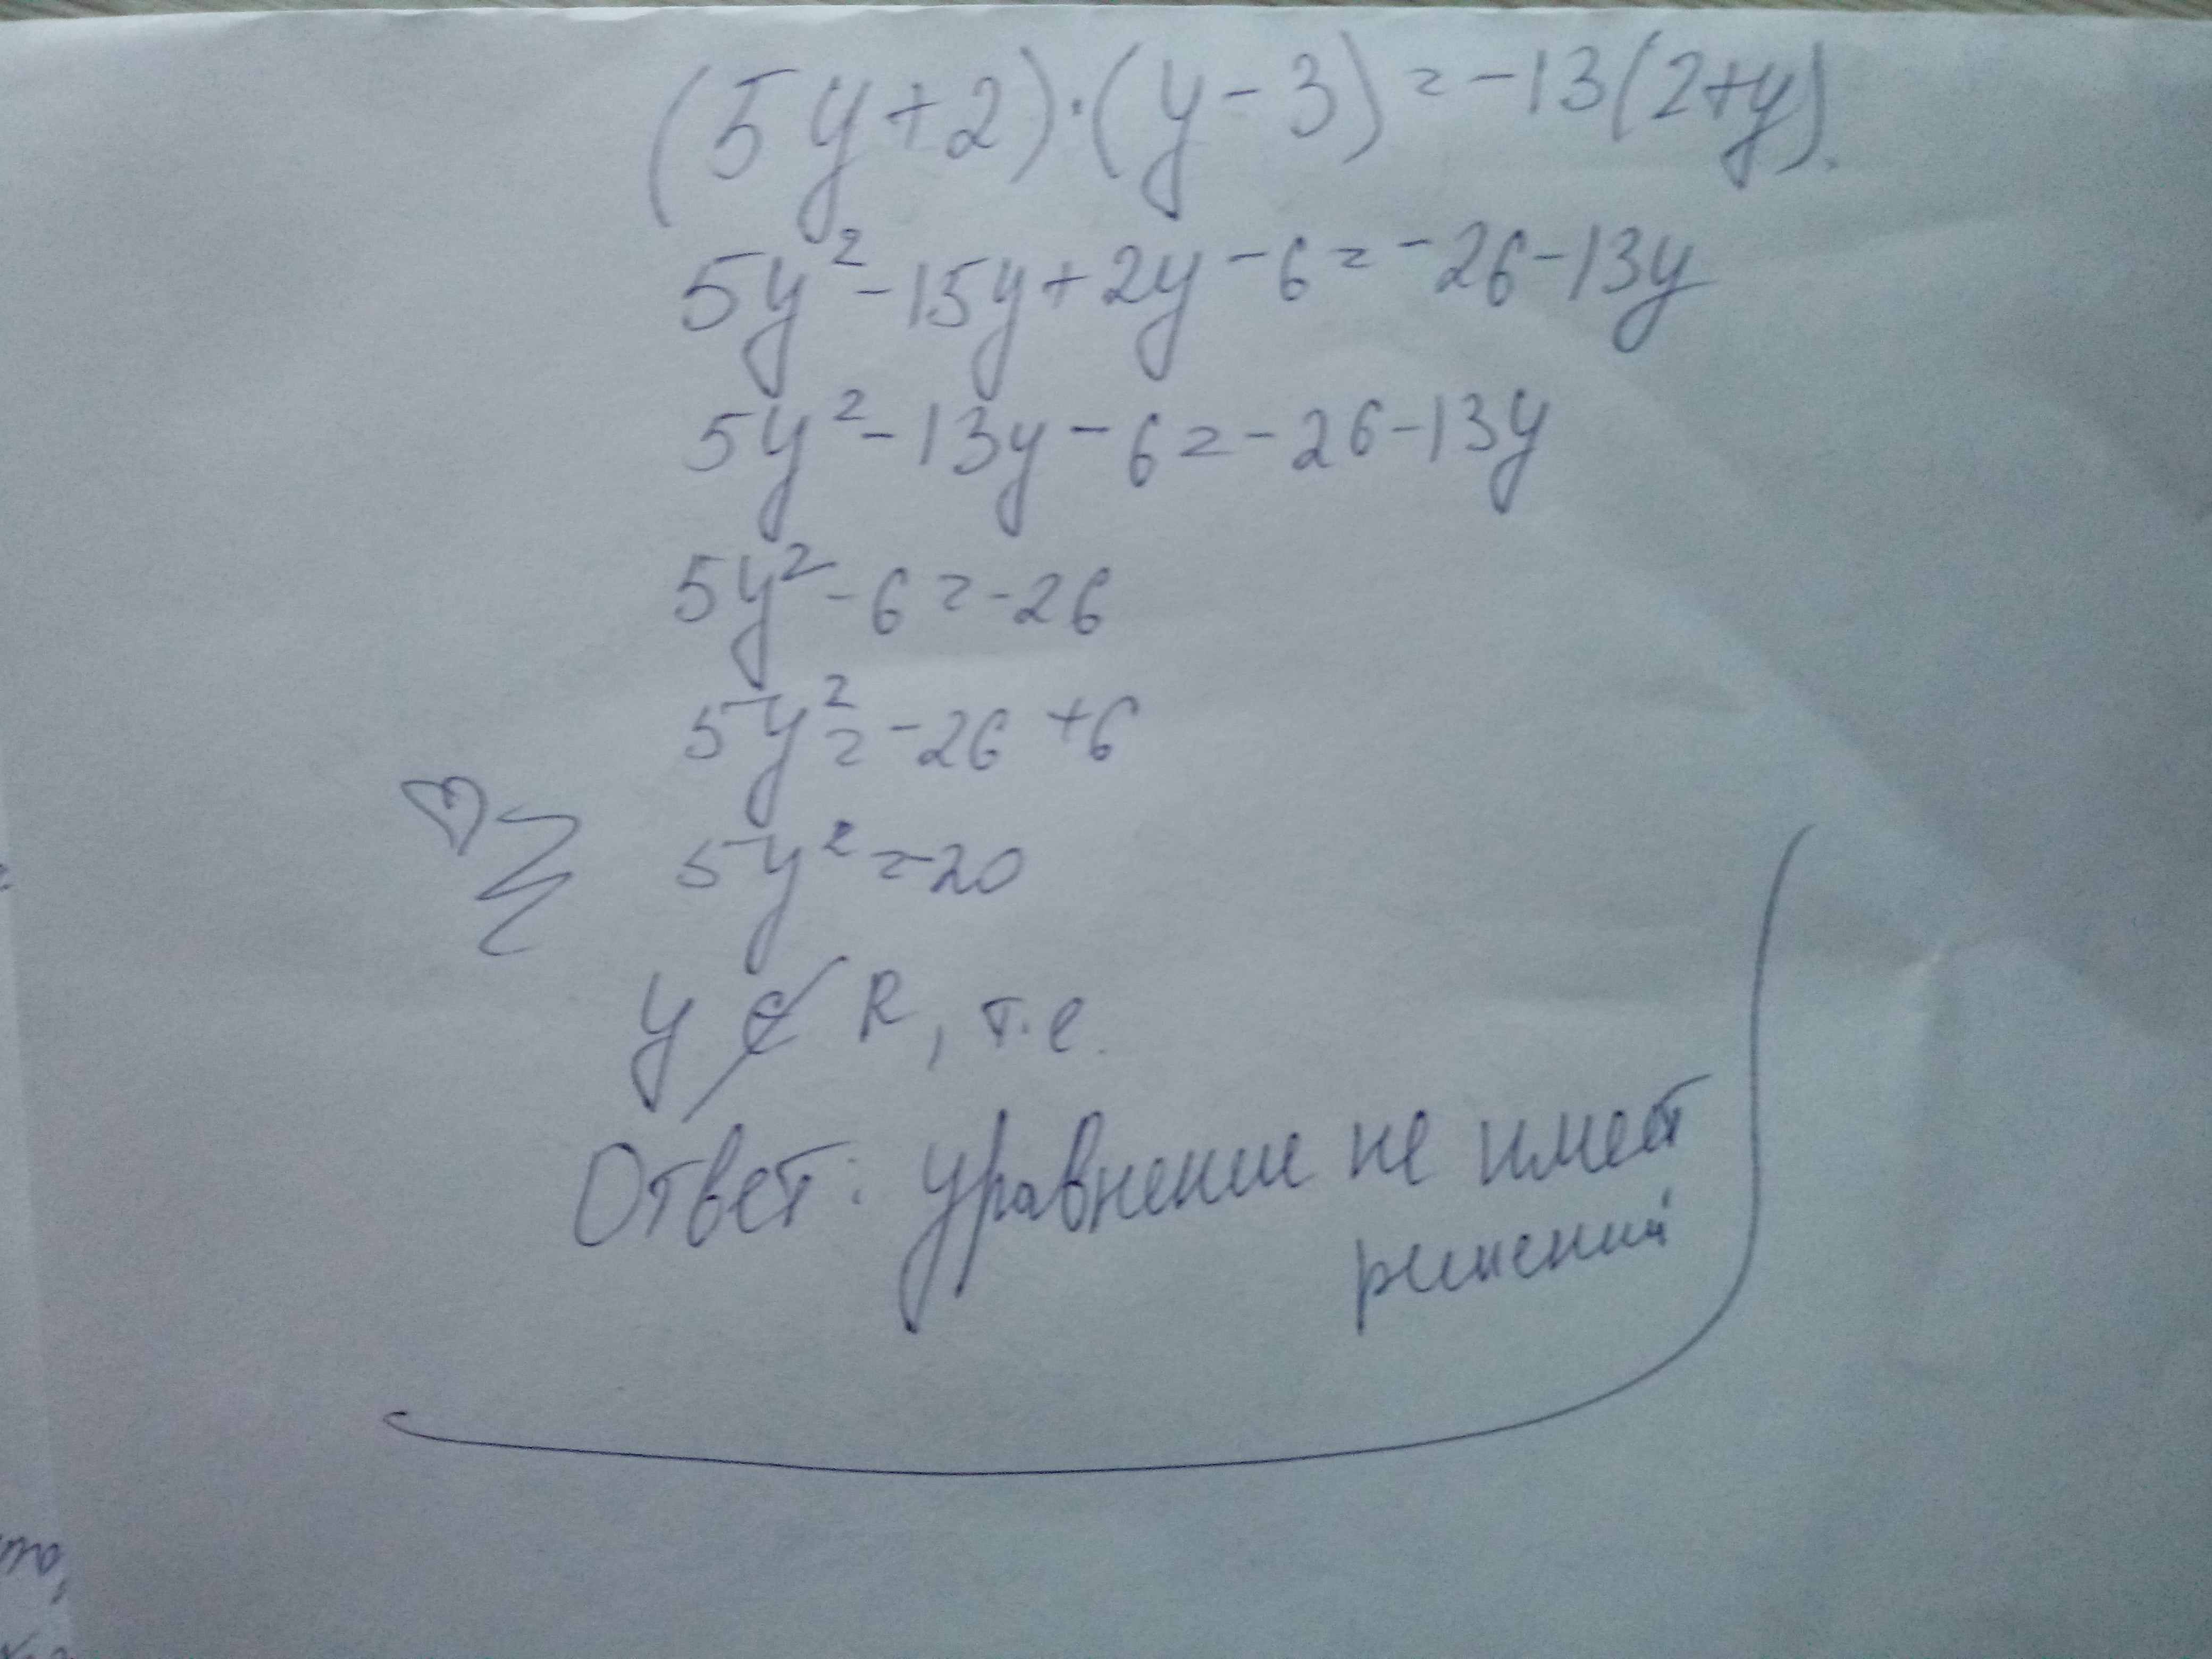 (5y+2)·(y-3)=-13(2+y).
5y²-15y+2y-6=-26-13y
5y²-13y-6=-26-13y
5y²-6=-26
5y²=-26+6
5y²=-20
y∉R, т.е.
Ответ: уравнение не имеет
решений